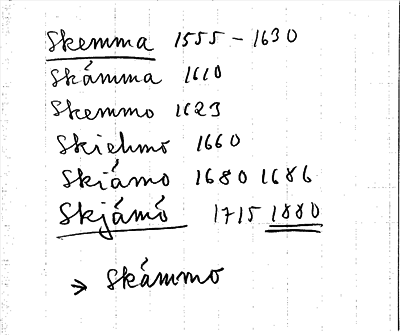 Skemma 1555 - 1630
Skámma 1610
Skemmo 1623
Skiehmo 1660
Skiámo 1680 1686
Skjámó 1715 1880
→ Skámmo